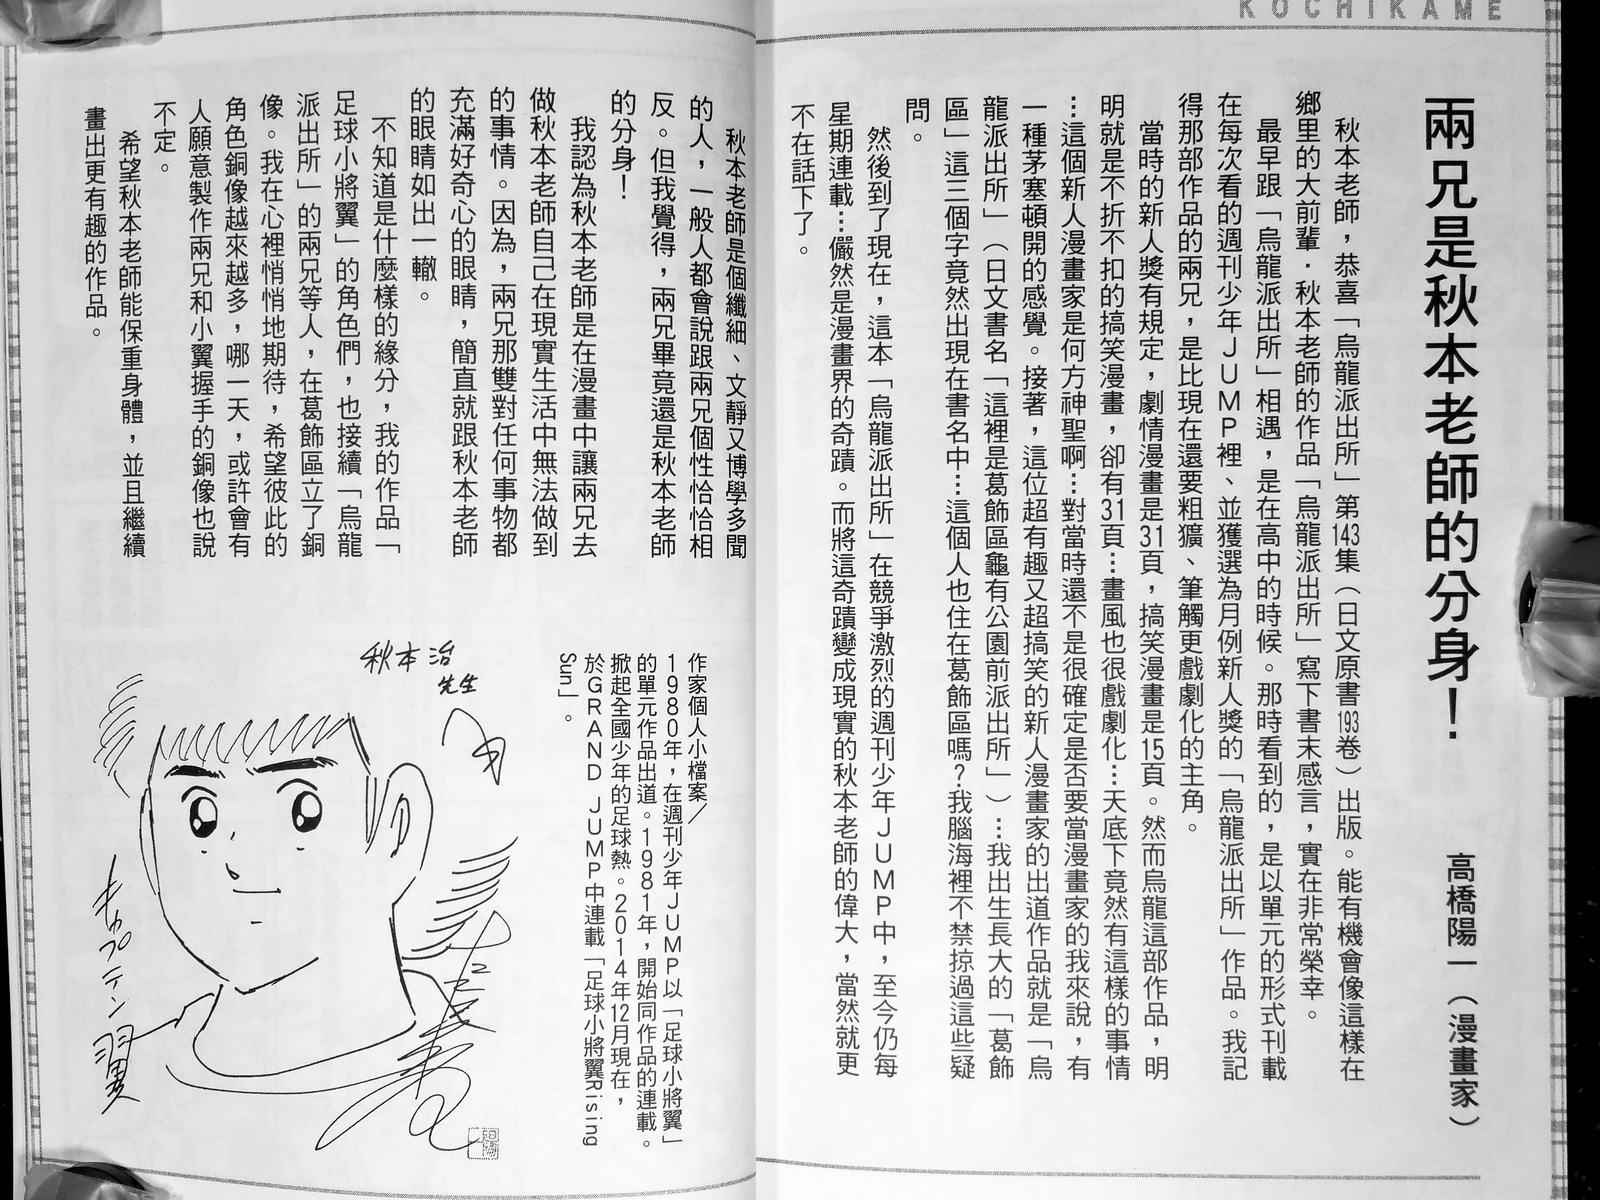 KOCHIKAME
兩兄是秋本老師的分身！
高橋陽一（漫畫家）
秋本老師，恭喜「烏龍派出所」第143集（日文原書193卷）出版。能有機會像這樣在
鄉里的大前輩．秋本老師的作品「烏龍派出所」寫下書末感言，實在非常榮幸。
最早跟「烏龍派出所」相遇，是在高中的時候。那時看到的，是以單元的形式刊載
在每次看的週刊少年ＪＵＭＰ裡、並獲選為月例新人獎的「烏龍派出所」作品。我記
得那部作品的兩兄，是比現在還要粗獷、筆觸更戲劇化的主角。
當時的新人獎有規定，劇情漫畫是31頁，搞笑漫畫是15頁。然而烏龍這部作品，明
明就是不折不扣的搞笑漫畫，卻有31頁…畫風也很戲劇化…天底下竟然有這樣的事情
…這個新人漫畫家是何方神聖啊…對當時還不是很確定是否要當漫畫家的我來說，有
一種茅塞頓開的感覺。接著，這位超有趣又超搞笑的新人漫畫家的出道作品就是「烏
龍派出所」（日文書名「這裡是葛飾區龜有公園前派出所」）…我出生長大的「葛飾
區」這三個字竟然出現在書名中…這個人也住在葛飾區嗎？我腦海裡不禁掠過這些疑
問。
然後到了現在，這本「烏龍派出所」在競爭激烈的週刊少年ＪＵＭＰ中，至今仍每
星期連載…儼然是漫畫界的奇蹟。而將這奇蹟變成現實的秋本老師的偉大，當然就更
不在話下了。
秋本老師是個纖細、文靜又博學多聞
的人，一般人都會說跟兩兄個性恰恰相
反。但我覺得，兩兄畢竟還是秋本老師
的分身！
我認為秋本老師是在漫畫中讓兩兄去
做秋本老師自己在現實生活中無法做到
的事情。因為，兩兄那雙對任何事物都
充滿好奇心的眼睛，簡直就跟秋本老師
的眼睛如出一轍。
不知道是什麼樣的緣分，我的作品「
足球小將翼」的角色們，也接續「烏龍
派出所」的兩兄等人，在葛飾區立了銅
像。我在心裡悄悄地期待，希望彼此的
角色銅像越來越多，哪一天，或許會有
人願意製作兩兄和小翼握手的銅像也說
不定。
希望秋本老師能保重身體，並且繼續
畫出更有趣的作品。
作家個人小檔案／
１９８０年，在週刊少年ＪＵＭＰ以「足球小將翼」
的單元作品出道。１９８１年，開始同作品的連載。
掀起全國少年的足球熱。２０１４年12月現在，
於ＧＲＡＮＤ ＪＵＭＰ中連載「足球小將翼Rising
Sun」。
秋本治
先生
キャプテン翼